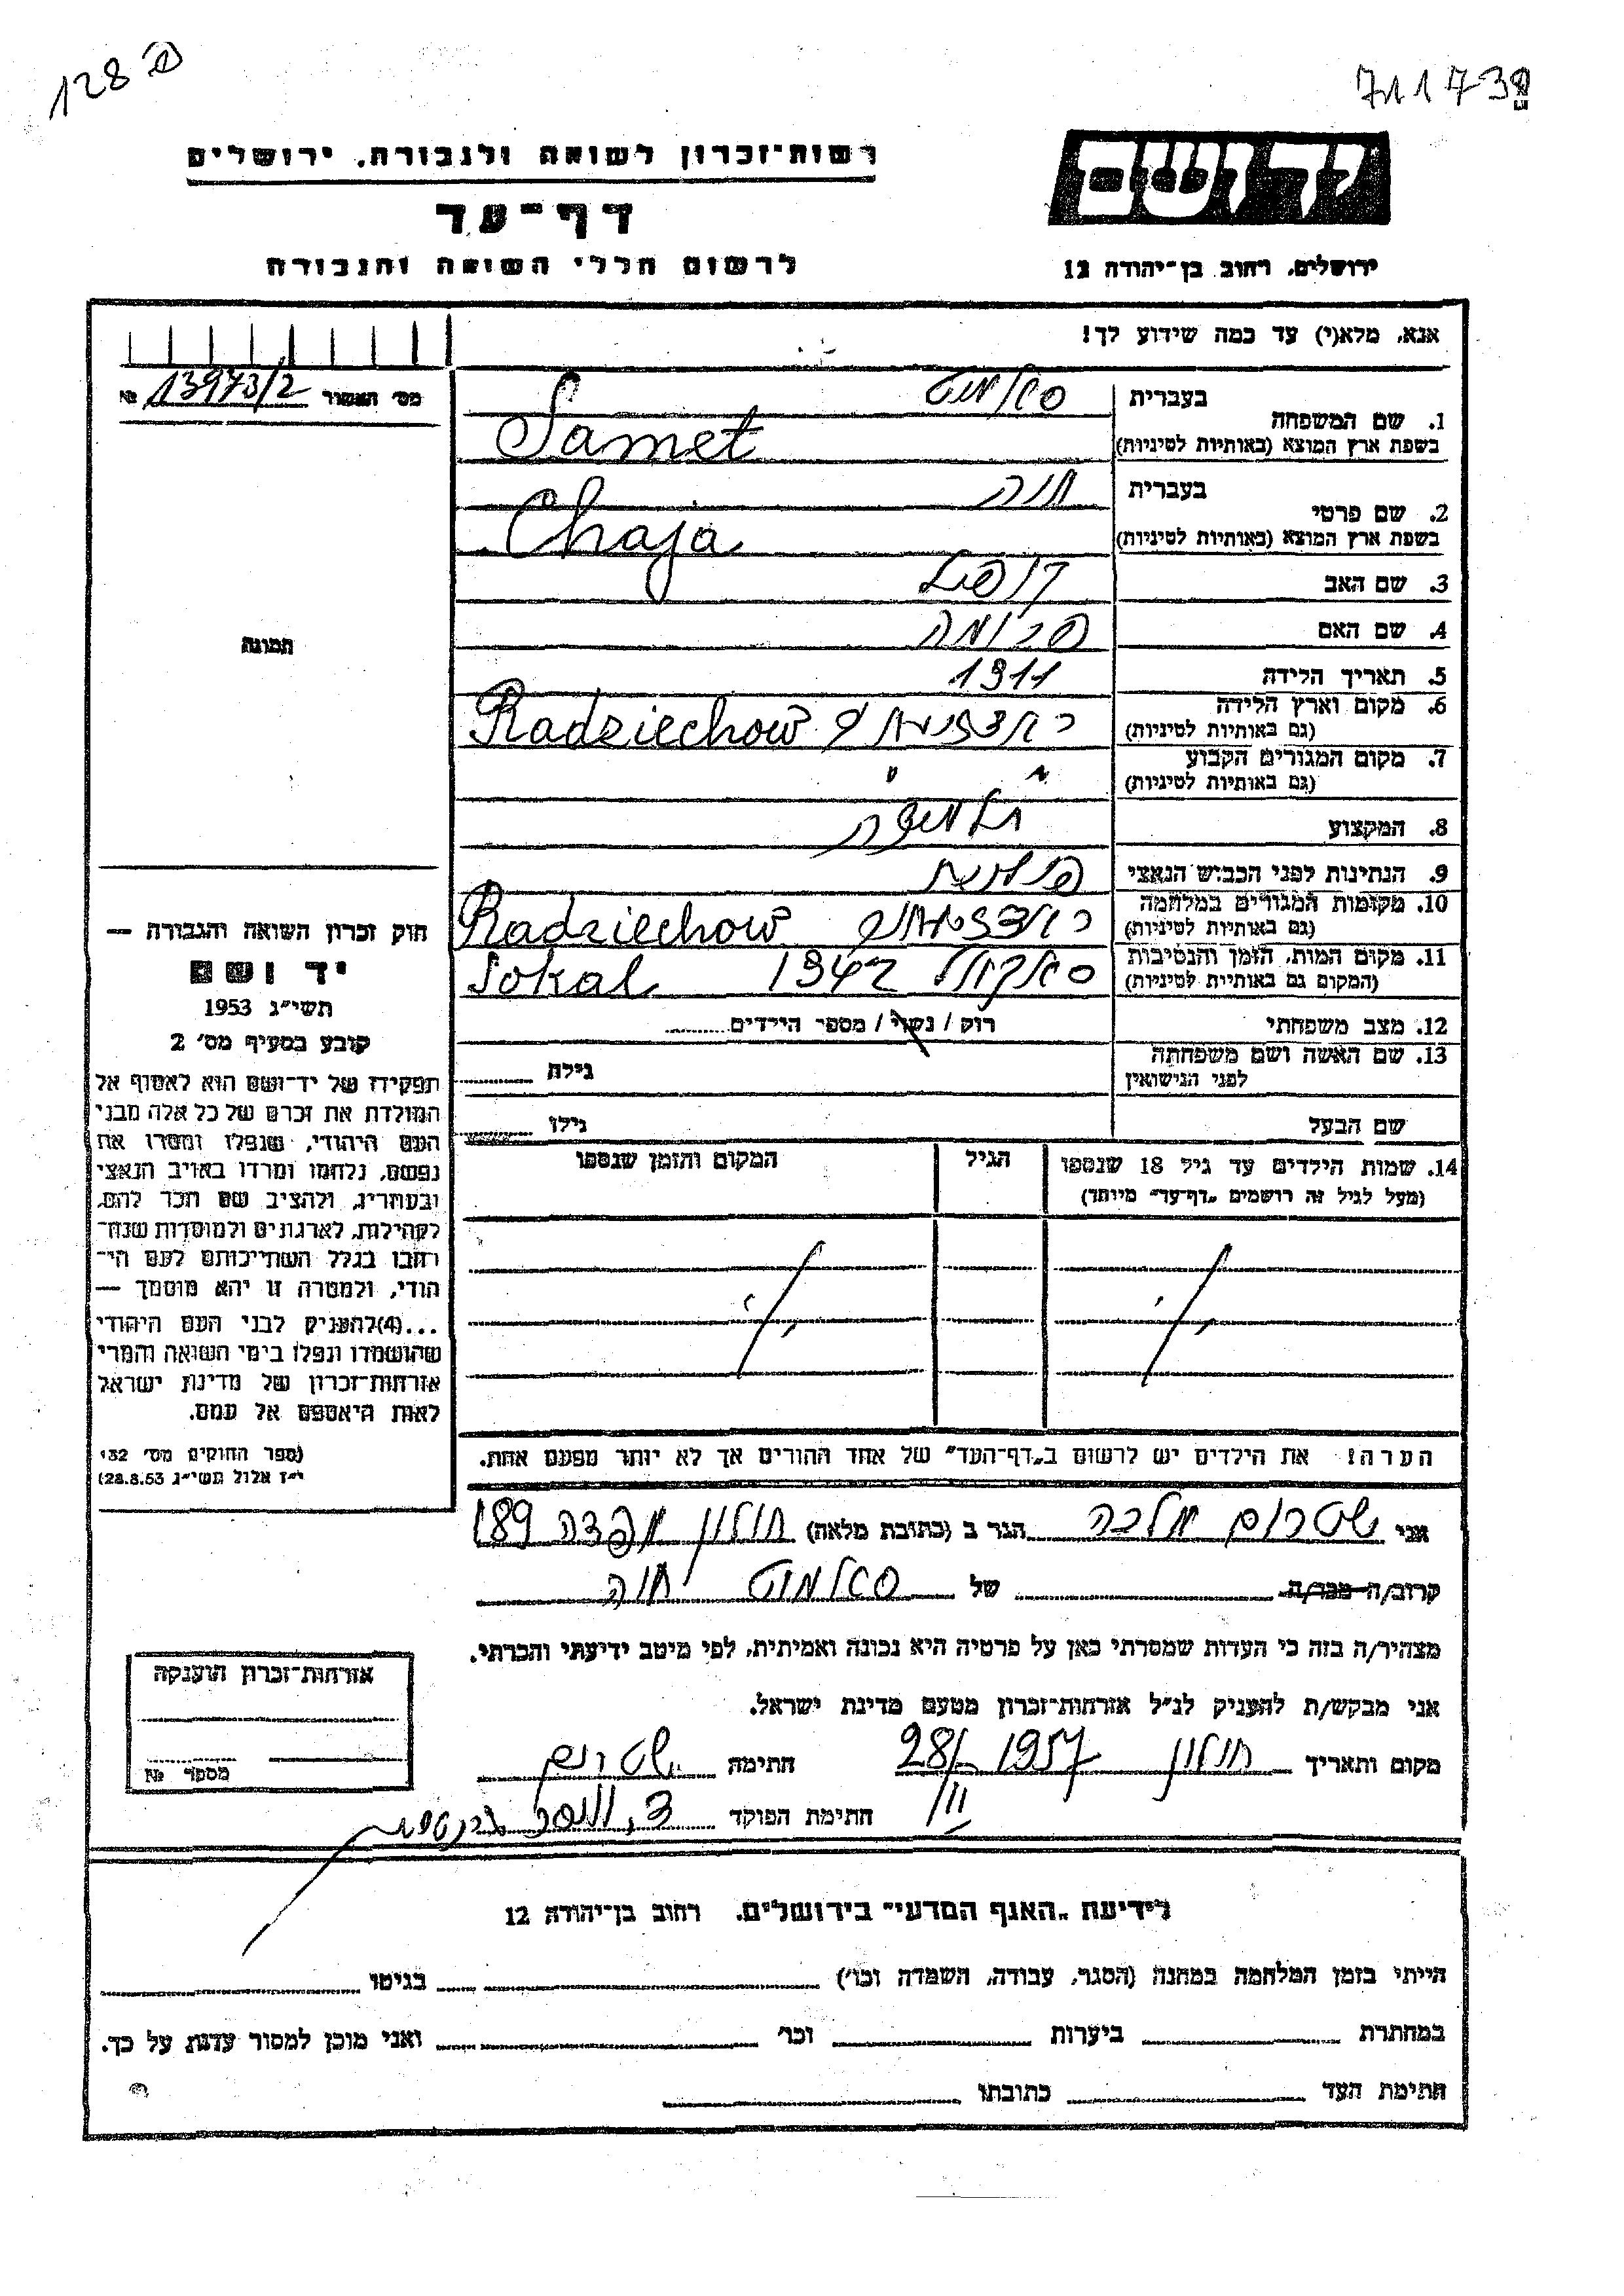 128
711738
יד ושם
רשות־זכרון לשואה ולגבורה, ירושלים
דף־עד
לרשום חללי השואה והגבורה
ירושלים, רחוב בן־יהודה 12
אנא, מלא(י) עד כמה שידוע לך!
מס' האשור № 13973/2
1. שם המשפחה בעברית סאמט
בשפת ארץ המוצא (באותיות לטיניות) Samet
2. שם פרטי בעברית חיה
בשפת ארץ המוצא (באותיות לטיניות) Chaja
3. שם האב
4. שם האם
5. תאריך הלידה 1911
6. מקום וארץ הלידה
(גם באותיות לטיניות) Radziechow
7. מקום המגורים הקבוע " "
(גם באותיות לטיניות)
8. המקצוע
9. הנתינות לפני הכבוש הנאצי פולנית
10. מקומות המגורים במלחמה
(גם באותיות לטיניות) Radziechow
11. מקום המות, הזמן והנסיבות
(המקום גם באותיות לטיניות) סאקאל 1942 Sokal
12. מצב משפחתי רוק / נשוי / מספר הילדים
13. שם האשה ושם משפחתה
לפני הנישואין גילה
שם הבעל גילו
14. שמות הילדים עד גיל 18 שנספו
(מעל לגיל זה רושמים „דף־עד" מיוחד)
הגיל
המקום והזמן שנספו
הערה! את הילדים יש לרשום ב„דף־העד" של אחד ההורים אך לא יותר מפעם אחת.
תמונה
חוק זכרון השואה והגבורה —
יד ושם
תשי"ג 1953
קובע בסעיף מס' 2
תפקידו של יד־ושם הוא לאסוף אל
המולדת את זכרם של כל אלה מבני
העם היהודי, שנפלו ומסרו את
נפשם, נלחמו ומרדו באויב הנאצי
ובעוזריו, ולהציב שם וזכר להם,
לקהילות, לארגונים ולמוסדות שנח־
רבו בגלל השתייכותם לעם הי־
הודי, ולמטרה זו יהא מוסמך —
...(4)להעניק לבני העם היהודי
שהושמדו ונפלו בימי השואה והמרי
אזרחות־זכרון של מדינת ישראל
לאות היאספם אל עמם.
(ספר החוקים מס' 132
י"ז אלול תשי"ג 28.8.53)
אני שטרום מלכה הגר ב (כתובת מלאה) חולון 189
קרוב/ה מכר/ה של סאמט חיה
מצהיר/ה בזה כי העדות שמסרתי כאן על פרטיה היא נכונה ואמיתית, לפי מיטב ידיעתי והכרתי.
אני מבקש/ת להעניק לנ"ל אזרחות־זכרון מטעם מדינת ישראל.
מקום ותאריך חולון 28/III 1957 חתימה שטרום
חתימת הפוקד
אזרחות־זכרון הוענקה
מספר №
לידיעת „האגף המדעי" בירושלים, רחוב בן־יהודה 12
הייתי בזמן המלחמה במחנה (הסגר, עבודה, השמדה וכו') בגיטו
במחתרת ביערות וכו' ואני מוכן למסור עדות על כך.
חתימת העד כתובתו